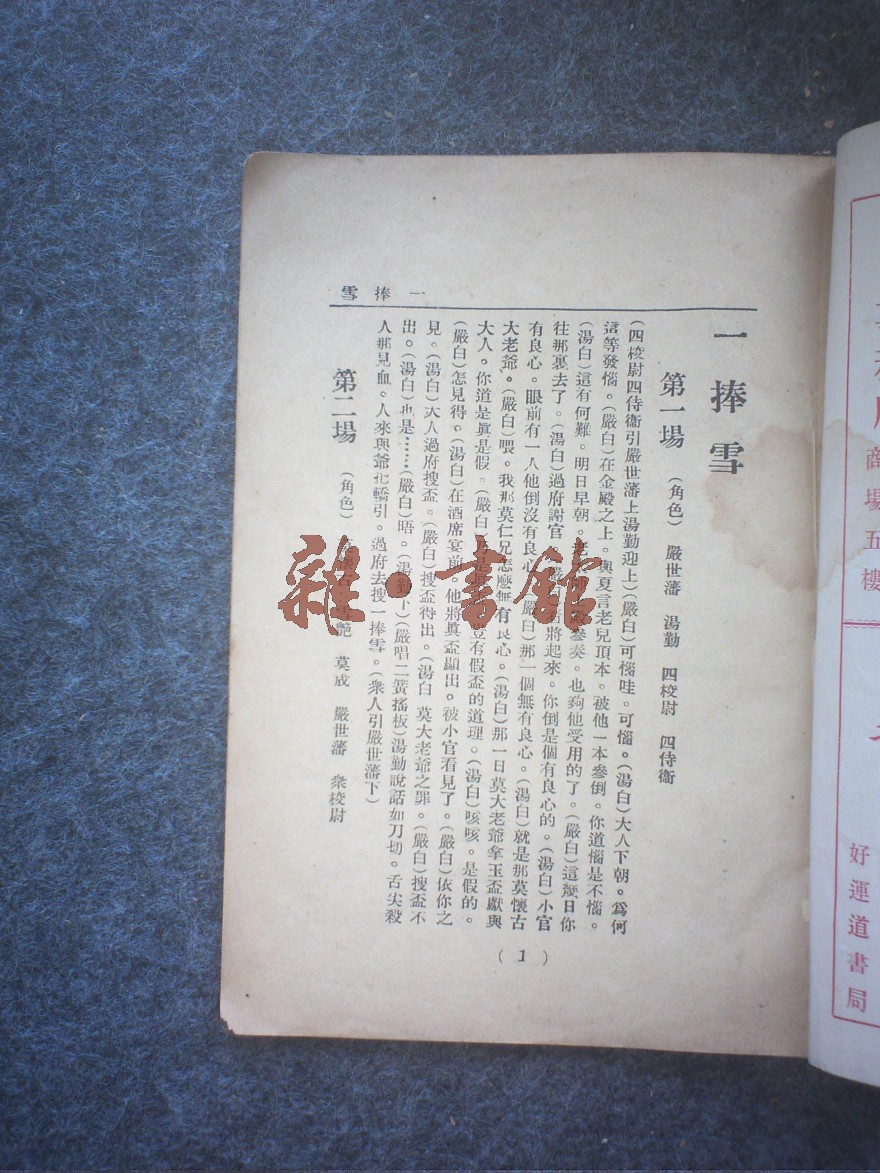 一捧雪
一捧雪
第一場 (角色) 嚴世藩 湯勤 四校尉 四侍衞
(四校尉四侍衞引嚴世藩上湯勤迎上)(嚴白)可惱哇。可惱。(湯白)大人下朝。爲何
這等發惱。(嚴白)在金殿之上。與夏言老兒頂本。被他一本參倒。你道惱是不惱。
(湯白)這有何難。明日早朝。參奏。也夠他受用的了。(嚴白)這幾日你
往那裏去了。(湯白)過府謝官。將起來。你倒是個有良心的。(湯白)小官
有良心。眼前有一人他倒沒有良心。(嚴白)那一個無有良心。(湯白)就是那莫懷古
大老爺。(嚴白)喂。我那莫仁兄怎麽無有良心。(湯白)那一日莫大老爺拿玉盃獻與
大人。你道是眞是假。(嚴白)豈有假盃的道理。(湯白)咳咳。是假的。
(嚴白)怎見得。(湯白)在酒席宴前。他將眞盃顯出。被小官看見了。(嚴白)依你之
見。(湯白)大人過府搜盃。(嚴白)搜盃待出。(湯白)莫大老爺之罪。(嚴白)搜盃不
出。(湯白)也是……(嚴白)唔。(湯勤下)(嚴唱二簧搖板)湯勤說話如刀切。舌尖殺
人那見血。人來與爺把轎引。過府去搜一捧雪。(衆人引嚴世藩下)
第二場 (角色) 莫成 嚴世藩 衆校尉
(1)
雜·書館
商場五樓
好運道書局